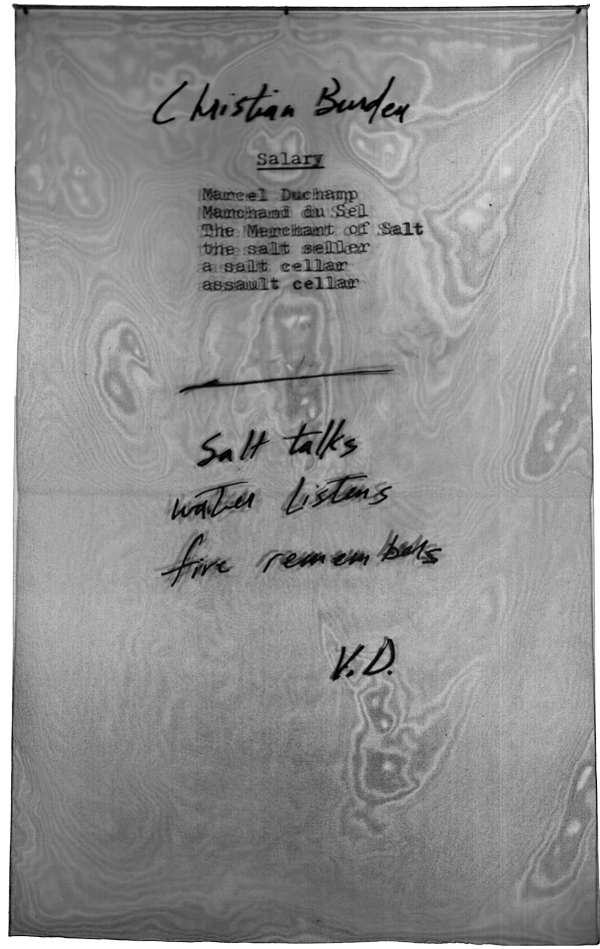 Christian Burden
Salary
Marcel Duchamp
Marchand du Sel
The Merchant of Salt
the salt seller
a salt cellar
assault cellar
Salt talks
water Listens
fire remembers
V.D.